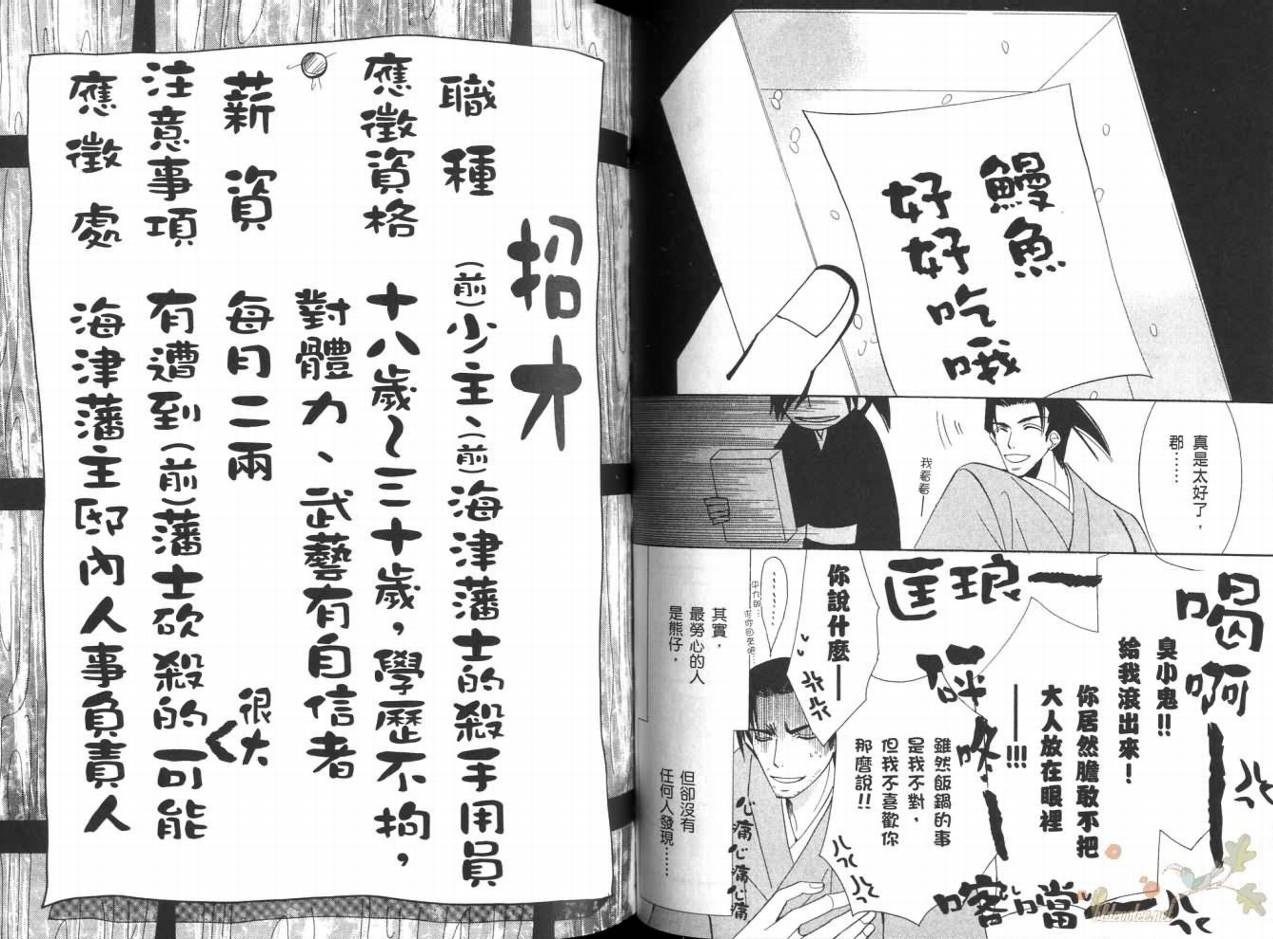 鰻魚
好好吃哦
真是太好了，
郡……
我看看——
喝啊——
臭小鬼!!
給我滾出來！
你居然膽敢不把
大人放在眼裡
——!!!
匡琅——
砰咚——
喀噹——
雖然飯鍋的事
是我不對，
但我不喜歡你
那麼說!!
你說什麼——
心痛心痛心痛
其實，
最勞心的人
是熊仔，
但卻沒有
任何人發現……
招才
職種
(前)少主、(前)海津藩士的殺手用員
應徵資格
十八歲～三十歲，學歷不拘，
對體力、武藝有自信者
薪資
每月二兩
注意事項
有遭到(前)藩士砍殺的可能
很大
應徵處
海津藩主邸內人事負責人